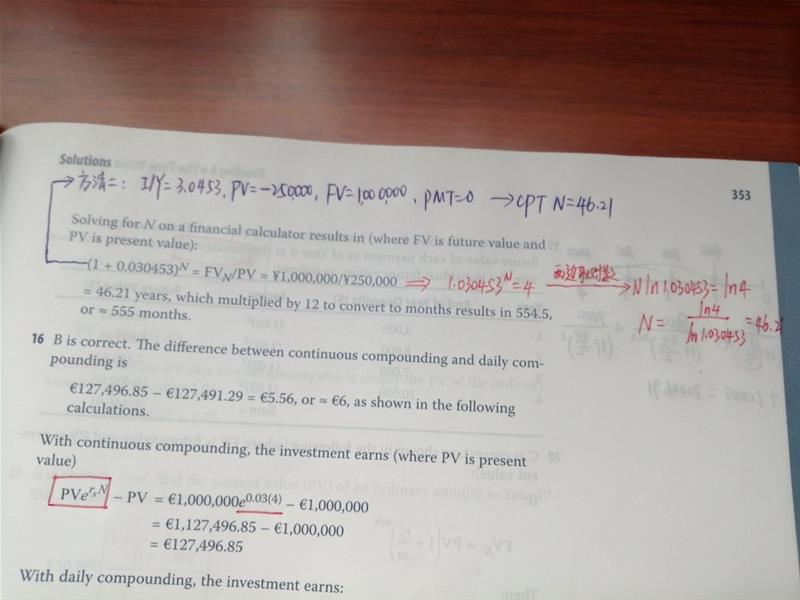 Solutions
353
方法二: I/Y=3.0453, PV=-250,000, FV=1,000,000, PMT=0 → CPT N=46.21
Solving for N on a financial calculator results in (where FV is future value and
PV is present value):
(1 + 0.030453)^N = FV_N/PV = ¥1,000,000/¥250,000 ⇒ 1.030453^N=4 两边取对数→ N ln1.030453=ln4
= 46.21 years, which multiplied by 12 to convert to months results in 554.5,
or ≈ 555 months.
N = ln4/ln1.030453 = 46.21
16 B is correct. The difference between continuous compounding and daily com-
pounding is
€127,496.85 − €127,491.29 = €5.56, or ≈ €6, as shown in the following
calculations.
With continuous compounding, the investment earns (where PV is present
value)
PVe^{r_s N} − PV = €1,000,000e^{0.03(4)} − €1,000,000
= €1,127,496.85 − €1,000,000
= €127,496.85
With daily compounding, the investment earns: